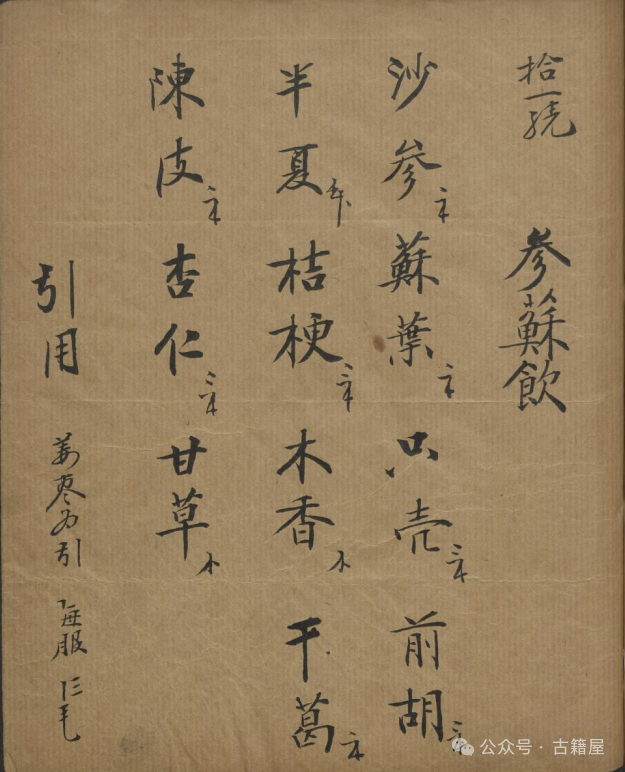 拾一號
參蘇飲
沙參 蘇葉 只壳 前胡
半夏 桔梗 木香 干葛
陳皮 杏仁 甘草
引用 姜枣为引 每服
公众号 · 古籍屋